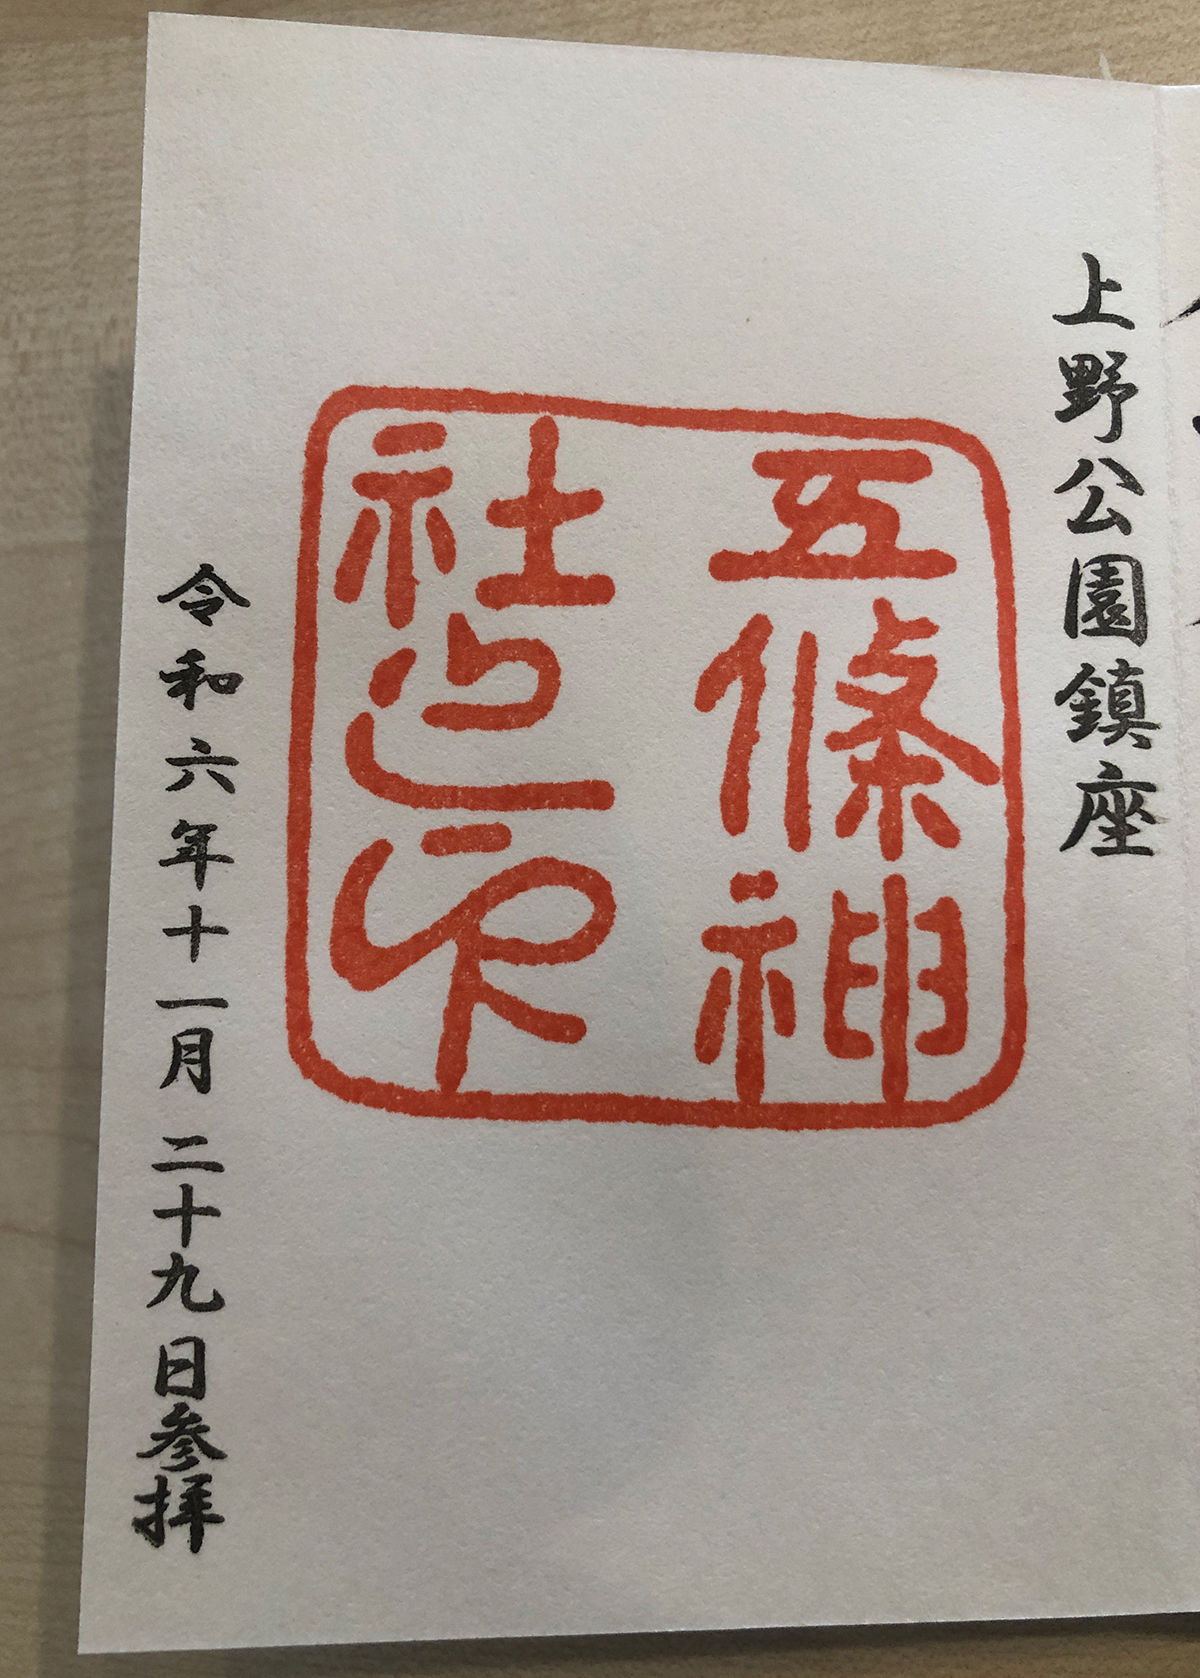 上野公園鎮座
五條神
社之印
令和六年十一月二十九日参拝